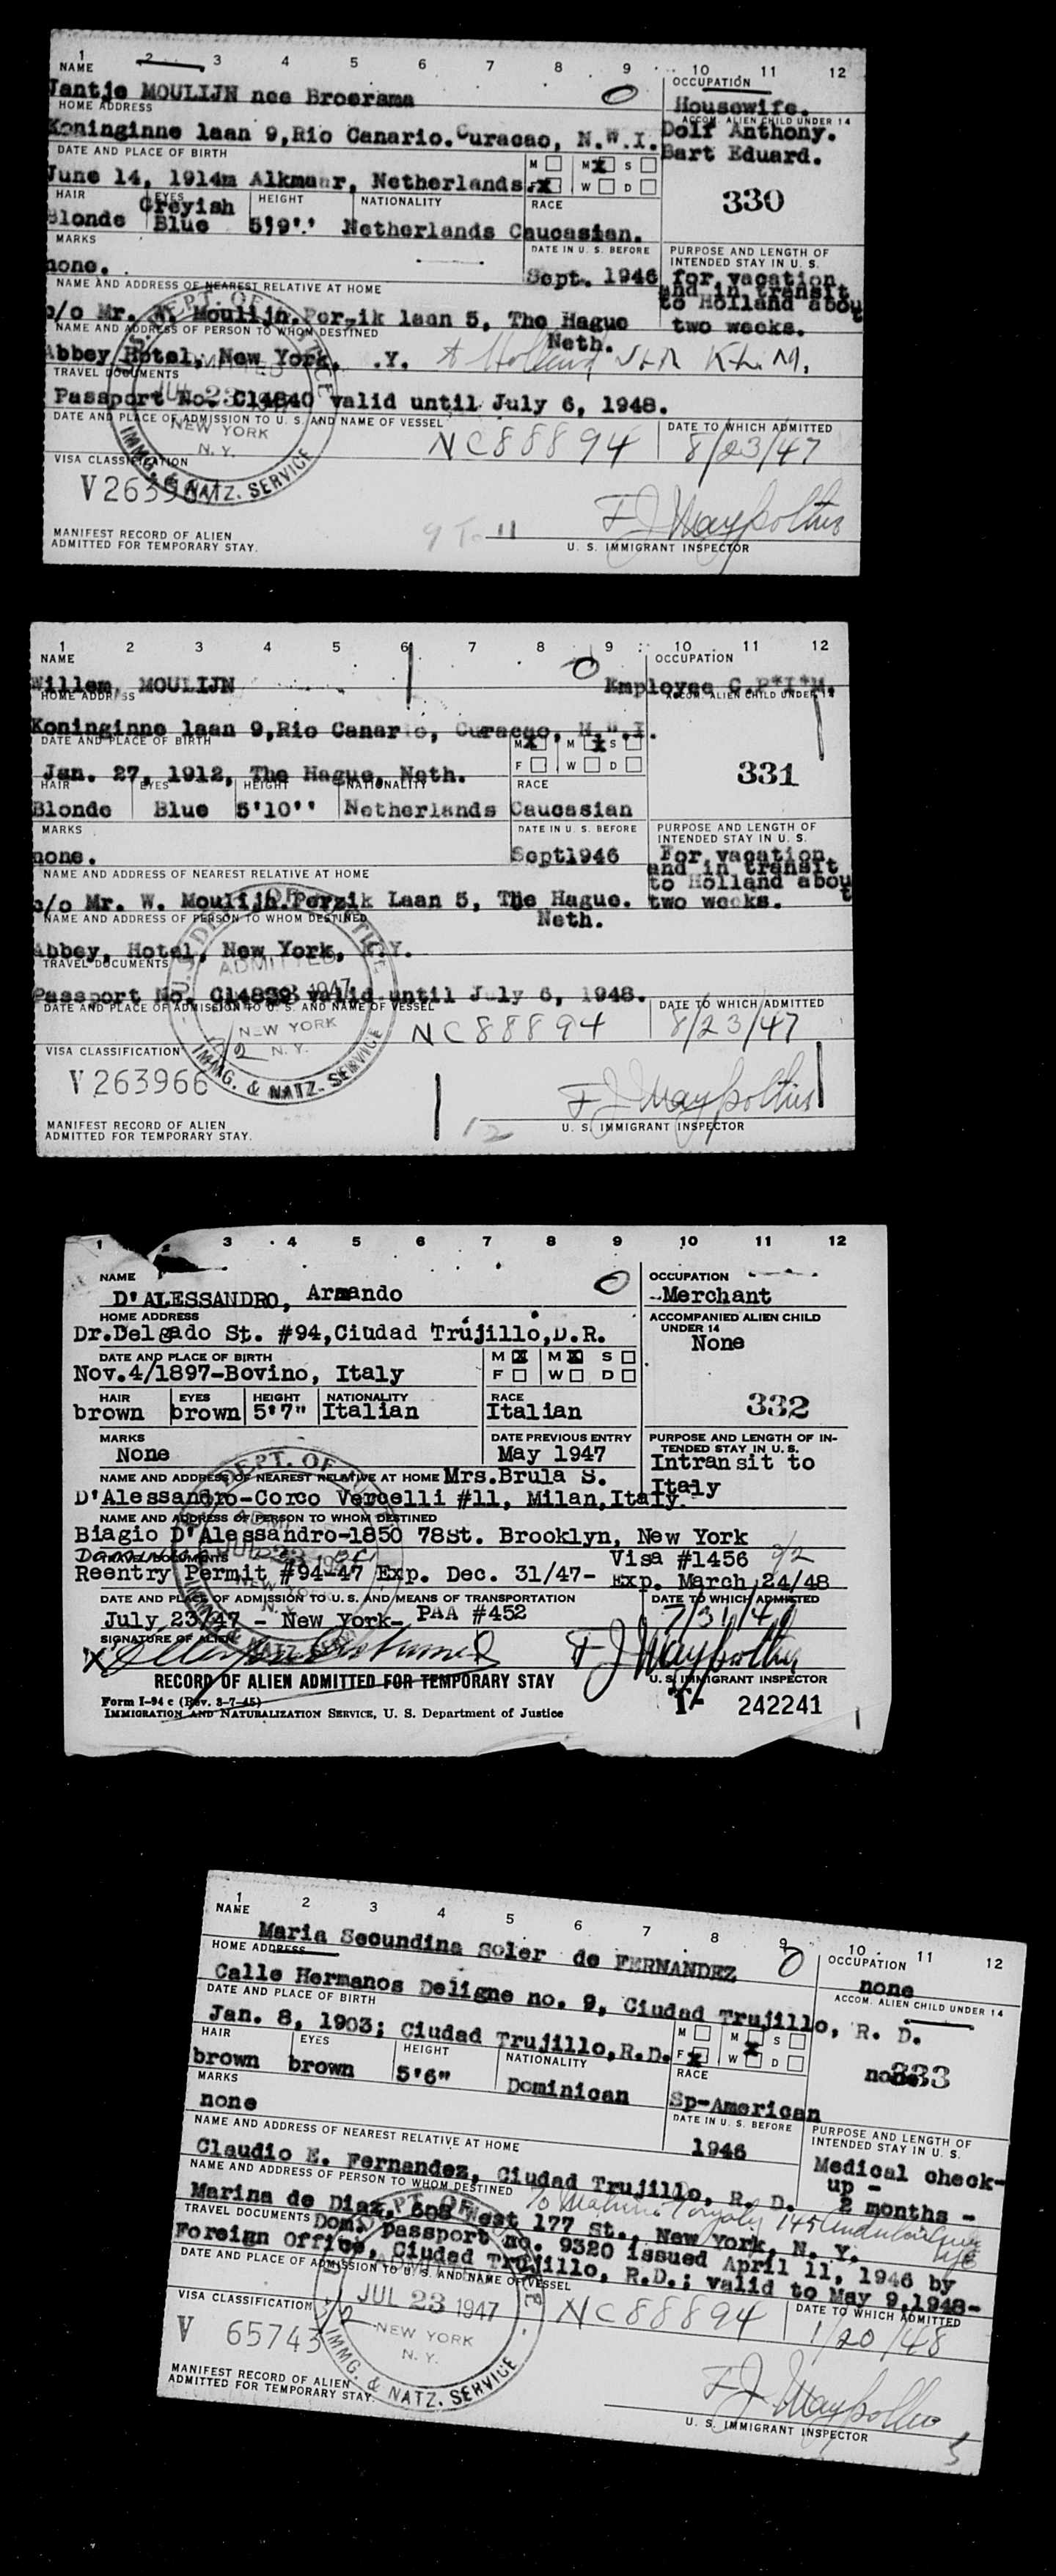 1 2 3 4 5 6 7 8 9 10 11 12
NAME
OCCUPATION
Jantje MOULIJN nee Broersma
Housewife.
HOME ADDRESS
ACCOM. ALIEN CHILD UNDER 14
Koninginne laan 9,Rio Canario.Curacao, N.W.I.
Dolf Anthony.
Bart Eduard.
DATE AND PLACE OF BIRTH
M M X S
June 14, 1914m Alkmaar, Netherlands.
F X W D
330
HAIR EYES HEIGHT NATIONALITY RACE
Blonde Greyish Blue 5'9'' Netherlands Caucasian.
MARKS
DATE IN U. S. BEFORE
PURPOSE AND LENGTH OF INTENDED STAY IN U. S.
none.
Sept. 1946
for vacation
and in transit
to Holland about
two weeks.
NAME AND ADDRESS OF NEAREST RELATIVE AT HOME
c/o Mr. W. Moulijn.Perzik laan 5, The Hague
Neth.
NAME AND ADDRESS OF PERSON TO WHOM DESTINED
Abbey Hotel, New York, .Y.
Holland K.L.M.
TRAVEL DOCUMENTS
Passport No. C14840 valid until July 6, 1948.
DATE AND PLACE OF ADMISSION TO U. S. AND NAME OF VESSEL
DATE TO WHICH ADMITTED
NC88894 8/23/47
DEPT. OF JUSTICE
ADMITTED
JUL 23 1947
NEW YORK
N. Y.
IMMG. & NATZ. SERVICE
VISA CLASSIFICATION
MANIFEST RECORD OF ALIEN
ADMITTED FOR TEMPORARY STAY.
9 To 11
U. S. IMMIGRANT INSPECTOR
1 2 3 4 5 6 7 8 9 10 11 12
NAME
OCCUPATION
Willem, MOULIJN
Employee C.P*I*M.
HOME ADDRESS
ACCOM. ALIEN CHILD UNDER 14
Koninginne laan 9,Rio Canario, Curacao, N.W.I.
DATE AND PLACE OF BIRTH
M X M X S
Jan. 27, 1912, The Hague, Neth.
F W D
331
HAIR EYES HEIGHT NATIONALITY RACE
Blonde Blue 5'10'' Netherlands Caucasian
MARKS
DATE IN U. S. BEFORE
PURPOSE AND LENGTH OF INTENDED STAY IN U. S.
none.
Sept1946
For vacation
and in transit
to Holland about
two weeks.
NAME AND ADDRESS OF NEAREST RELATIVE AT HOME
c/o Mr. W. Moulijn.Perzik Laan 5, The Hague.
Neth.
NAME AND ADDRESS OF PERSON TO WHOM DESTINED
Abbey, Hotel, New York, N.Y.
TRAVEL DOCUMENTS
Passport No. C14839 valid until July 6, 1948.
DATE AND PLACE OF ADMISSION TO U. S. AND NAME OF VESSEL
DATE TO WHICH ADMITTED
NC88894 8/23/47
U. S. DEPT. OF JUSTICE
ADMITTED
1947
NEW YORK
N. Y.
IMMG. & NATZ. SERVICE
VISA CLASSIFICATION
V 263966
MANIFEST RECORD OF ALIEN
ADMITTED FOR TEMPORARY STAY.
12
U. S. IMMIGRANT INSPECTOR
1 3 4 5 6 7 8 9 10 11 12
NAME
OCCUPATION
D'ALESSANDRO, Armando
Merchant
HOME ADDRESS
ACCOMPANIED ALIEN CHILD UNDER 14
Dr.Delgado St. #94,Ciudad Trujillo,D.R.
None
DATE AND PLACE OF BIRTH
M X M X S
Nov.4/1897-Bovino, Italy
F W D
332
HAIR EYES HEIGHT NATIONALITY RACE
brown brown 5'7" Italian Italian
MARKS
DATE PREVIOUS ENTRY
PURPOSE AND LENGTH OF INTENDED STAY IN U. S.
None
May 1947
Intransit to
Italy
NAME AND ADDRESS OF NEAREST RELATIVE AT HOME Mrs.Brula S.
D'Alessandro-Corco Vercelli #11, Milan,Italy
NAME AND ADDRESS OF PERSON TO WHOM DESTINED
Biagio D'Alessandro-1850 78St. Brooklyn, New York
TRAVEL DOCUMENTS
Visa #1456
Reentry Permit #94-47 Exp. Dec. 31/47- Exp. March 24/48
DATE AND PLACE OF ADMISSION TO U. S. AND MEANS OF TRANSPORTATION
DATE TO WHICH ADMITTED
July 23/47 - New York- PAA #452
7/31/47
SIGNATURE OF ALIEN
U. S. IMMIGRANT INSPECTOR
RECORD OF ALIEN ADMITTED FOR TEMPORARY STAY
Form I-94 c (Rev. 3-7-45)
IMMIGRATION AND NATURALIZATION SERVICE, U. S. Department of Justice
T- 242241
1 2 3 4 5 6 7 8 9 10 11 12
NAME
OCCUPATION
Maria Secundina Soler de FERNANDEZ
none
HOME ADDRESS
ACCOM. ALIEN CHILD UNDER 14
Calle Hermanos Deligne no. 9, Ciudad Trujillo, R. D.
none
333
DATE AND PLACE OF BIRTH
M M X S
Jan. 8, 1903; Ciudad Trujillo,R.D.
F X W D
HAIR EYES HEIGHT NATIONALITY RACE
brown brown 5'6" Dominican Sp-American
MARKS
DATE IN U. S. BEFORE
PURPOSE AND LENGTH OF INTENDED STAY IN U. S.
none
1946
Medical check-
up -
2 months -
NAME AND ADDRESS OF NEAREST RELATIVE AT HOME
Claudio E. Fernandez, Ciudad Trujillo, R. D.
NAME AND ADDRESS OF PERSON TO WHOM DESTINED
Marina de Diaz, 608 West 177 St., New York, N. Y.
TRAVEL DOCUMENTS
Dom. Passport no. 9320 issued April 11, 1946 by
Foreign Office, Ciudad Trujillo, R.D.; valid to May 9,1948-
DATE AND PLACE OF ADMISSION TO U. S. AND NAME OF VESSEL
DATE TO WHICH ADMITTED
NC88894 1/20/48
JUL 23 1947
NEW YORK
N. Y.
IMMG. & NATZ. SERVICE
VISA CLASSIFICATION
V 65743
MANIFEST RECORD OF ALIEN
ADMITTED FOR TEMPORARY STAY.
U. S. IMMIGRANT INSPECTOR